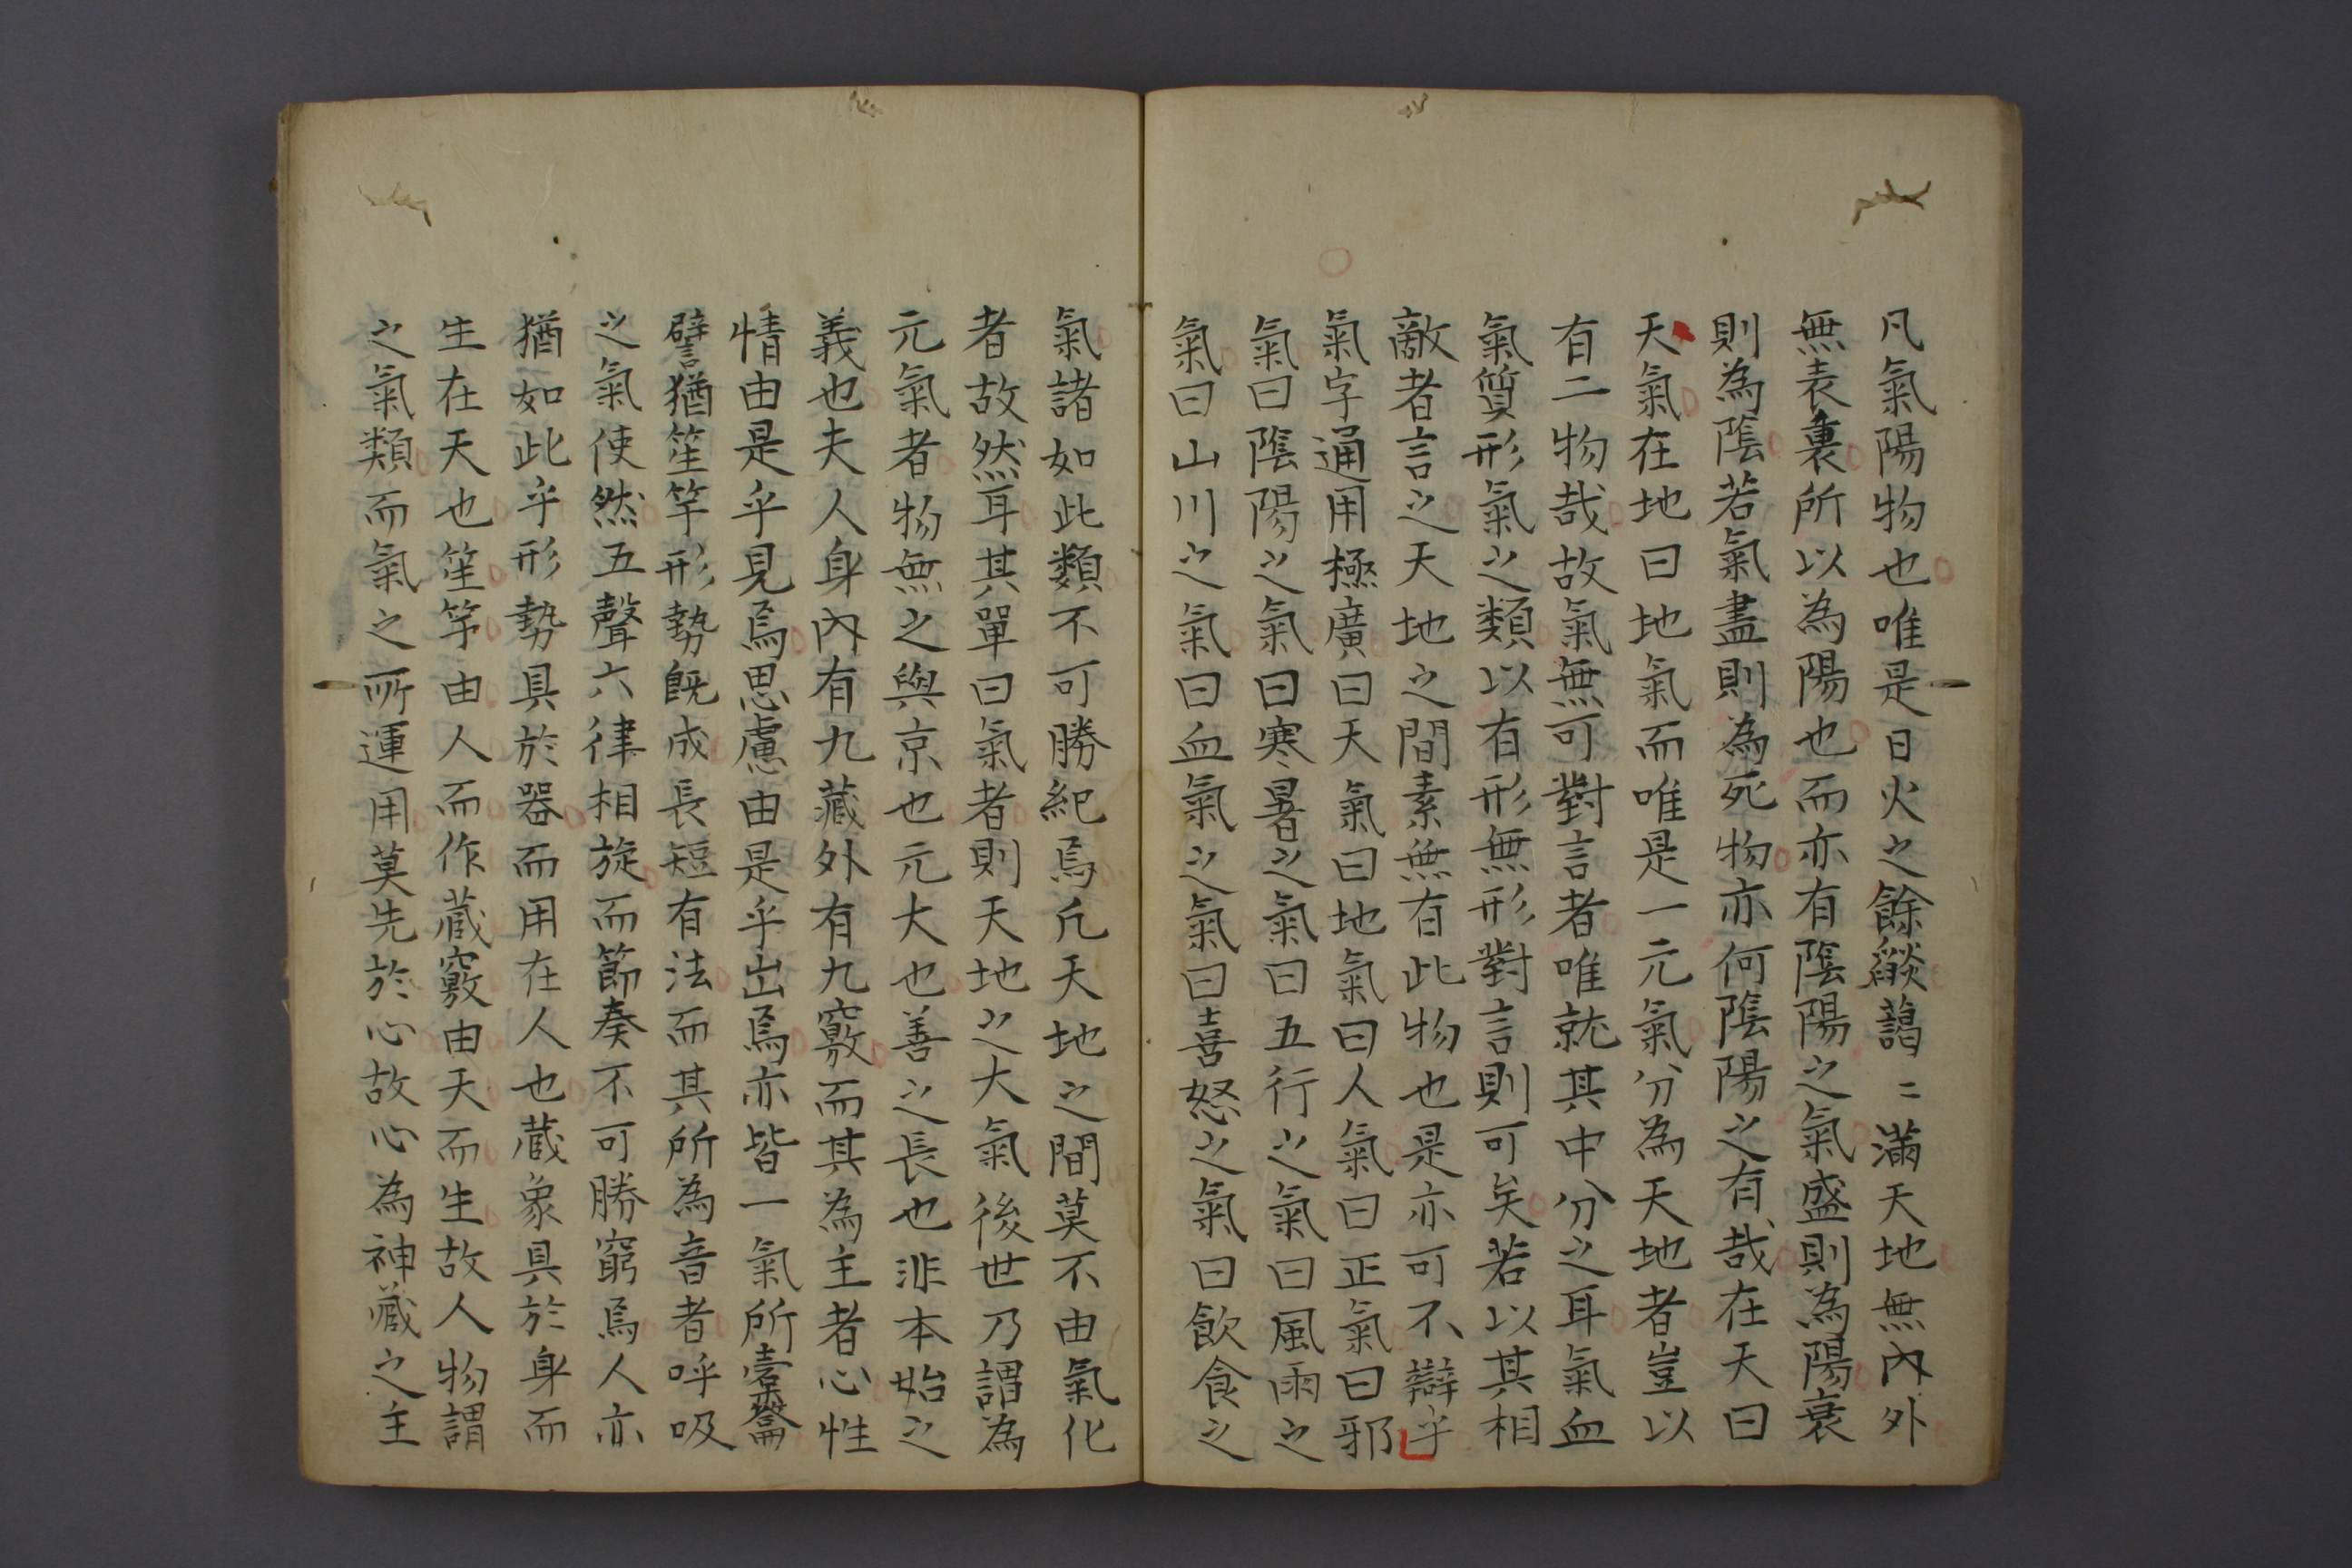 凡氣陽物也唯是日火之餘燄藹〻滿天地無內外
無表裏所以為陽也而亦有陰陽之氣盛則為陽衰
則為陰若氣盡則為死物亦何陰陽之有哉在天曰
天氣在地曰地氣而唯是一元氣分為天地者豈以
有二物哉故氣無可對言者唯就其中分之耳氣血
氣質形氣之類以有形無形對言則可矣若以其相
敵者言之天地之間素無有此物也是亦可不辯乎
氣字通用極廣曰天氣曰地氣曰人氣曰正氣曰邪
氣曰陰陽之氣曰寒暑之氣曰五行之氣曰風雨之
氣曰山川之氣曰血氣之氣曰喜怒之氣曰飲食之
氣諸如此類不可勝紀焉凡天地之間莫不由氣化
者故然耳其單曰氣者則天地之大氣後世乃謂為
元氣者物無之與京也元大也善之長也非本始之
義也夫人身內有九藏外有九竅而其為主者心性
情由是乎見焉思慮由是乎出焉亦皆一氣所橐籥
譬猶笙竽形勢既成長短有法而其所為音者呼吸
之氣使然五聲六律相旋而節奏不可勝窮焉人亦
猶如此乎形勢具於器而用在人也藏象具於身而
生在天也笙竽由人而作藏竅由天而生故人物謂
之氣類而氣之所運用莫先於心故心為神藏之主